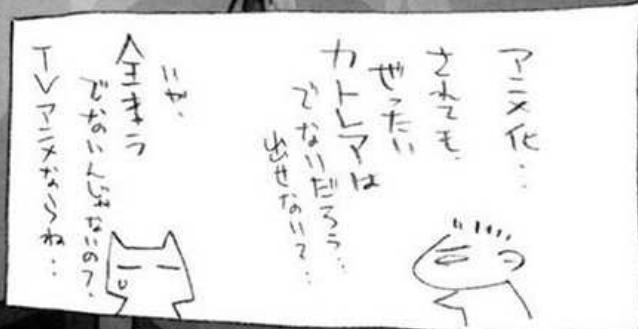 アニメ化‥
されても、
ぜったい
カトレアは
でないだろう‥
出せない?‥
いや、
全キャラ
でないんじゃないの?
TVアニメならね‥